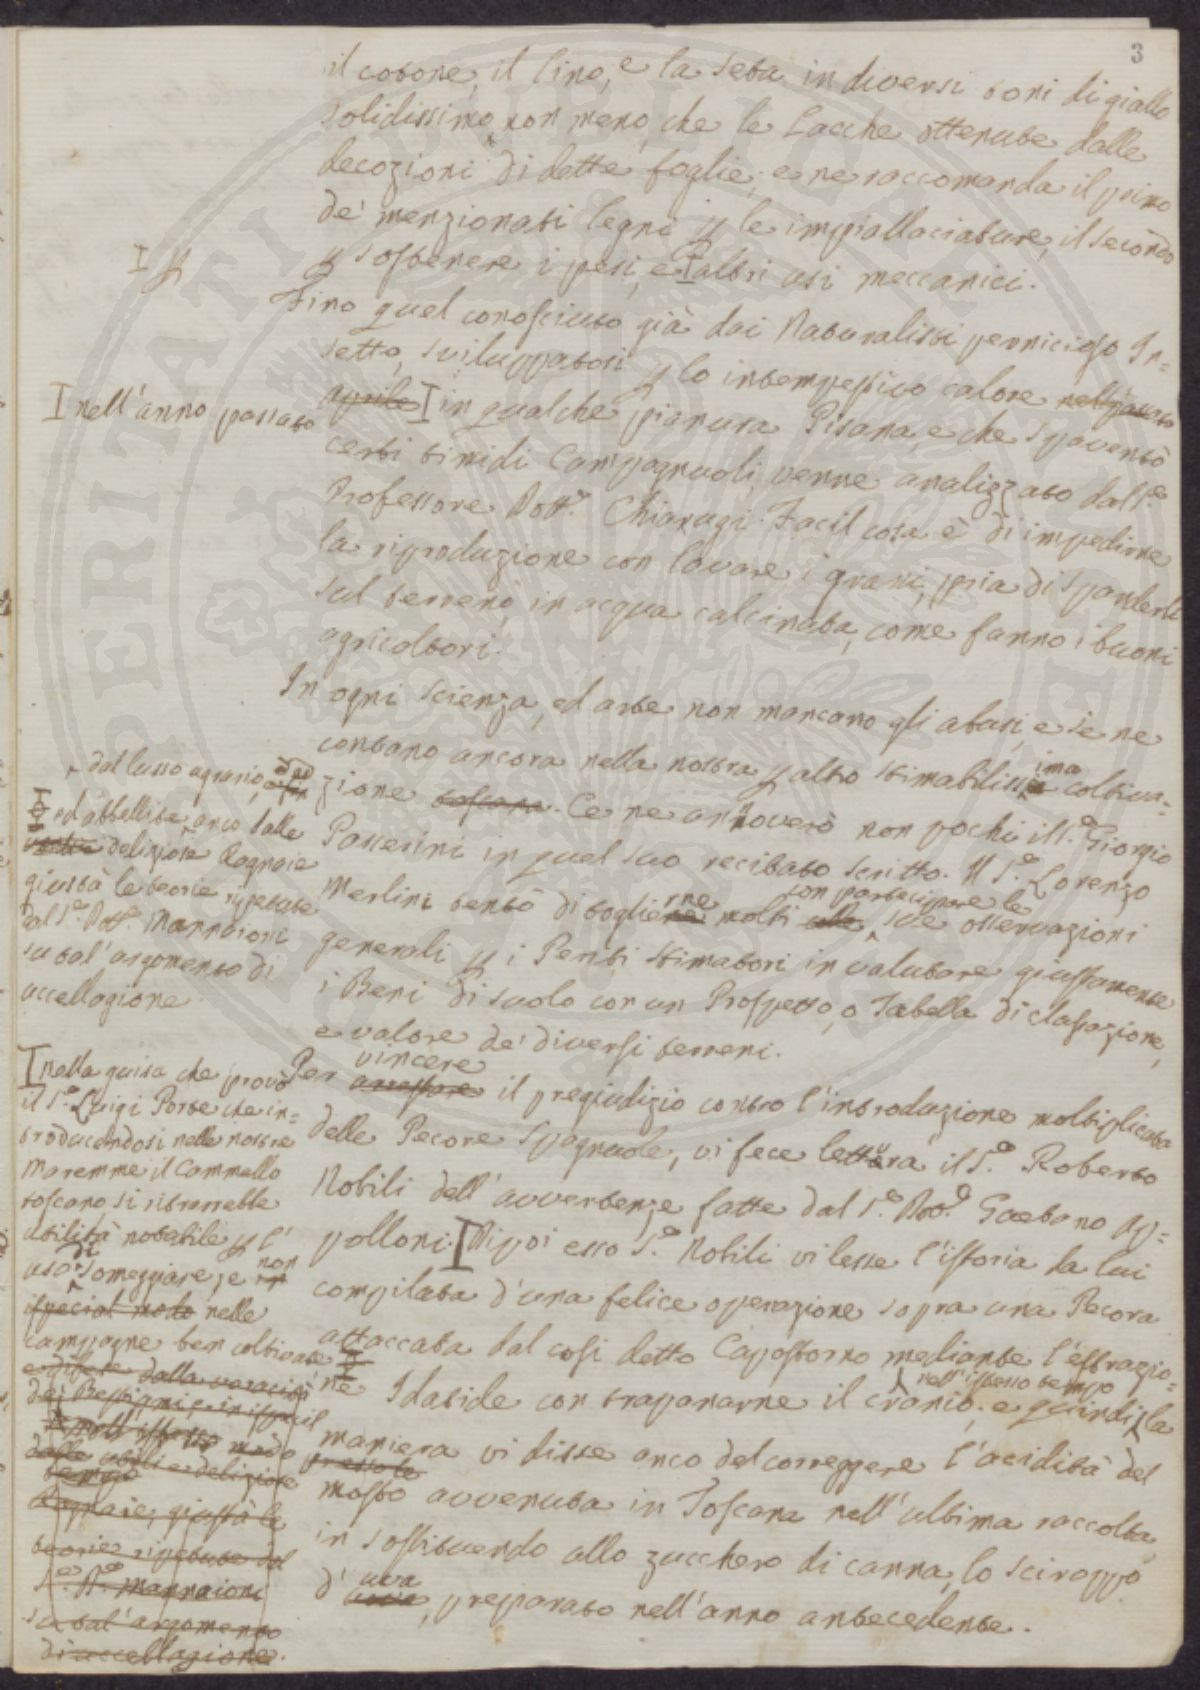 3
il cotone, il lino, e la seta in diversi toni di giallo
solidissimo, non meno, che le Lacche ottenute dalle
decozioni di dette foglie; e ne raccomanda il primo
de' menzionati legni p le impiallaciature, il secondo
p sostenere i pesi, e I altri usi meccanici.
I p
Fino quel conosciuto già dai Naturalisti pernicioso In=
setto, sviluppatosi p lo intempestivo calore nell'passato
aprile I in qualche pianura Pisana, e che spaventò
I nell'anno passato
certi timidi Campagnuoli, venne analizzato dal S.e
Professore Dott.e Chiarugi. Facil cosa è di impedirne
la riproduzione con lavare i grani, pria di spanderli
sul terreno, in acqua calcinata, come fanno i buoni
agricoltori.
In ogni scienza, ed arte non mancano gli abusi, e se ne
contano ancora nella nostra p altro stimabilissima coltiva=
zione toscana. Ce ne annoverò non pochi il S.e Giorgio
Passerini in quel suo recitato scritto. Il S.e Lorenzo
Merlini tentò di toglierne molti con partecipare le sue osservazioni
generali p i Periti stimatori in valutare giustamente
i Beni di suolo con un Prospetto, o Tabella di classazione,
e valore de' diversi terreni.
dal lusso agrario,
ed abbellite anco dalle
deliziose Ragnaie
giustà le teorie ripetute
dal S.e Dott.e Mannaioni
su tal'argomento di
uccellagione.
Per vincere arrestare il pregiudizio contro l'introduzione moltiplicata
delle Pecore Spagnuole, vi fece lettura il S.e Roberto
Nobili dell'avvertenze fatte dal S.e Dott.e Gaetano Ap=
polloni. I Dipoi esso S.e Nobili vi lesse l'istoria da lui
compilata d'una felice operazione sopra una Pecora
attaccata dal così detto Capostorno mediante l'estrazio=
ne Idatide con trapanarne il cranio; e quindi nell'istesso tempo la
maniera vi disse anco del correggere l'acidità del
presso le
mosto avvenuta in Toscana nell'ultima raccolta,
in sostituendo allo zucchero di canna, lo sciroppo
d'uva, preparato nell'anno antecedente.
I nella guisa che provò
il S.e Luigi Porte che in=
troducendosi nelle nostre
Maremme il Cammello
toscano, si ritrarrebbe
utilità notabile p l'
uso di someggiare, e non
ispecial modo nelle
campagne ben coltivate
e difese dalla voracità
dei Bestiami, e in ispecial
modo
dalle utili e deliziose
tempo
Ragnaie, giustà le
teorie ripetute dal
S.e D.e Mannaioni
su tal'argomento
di uccellagione.